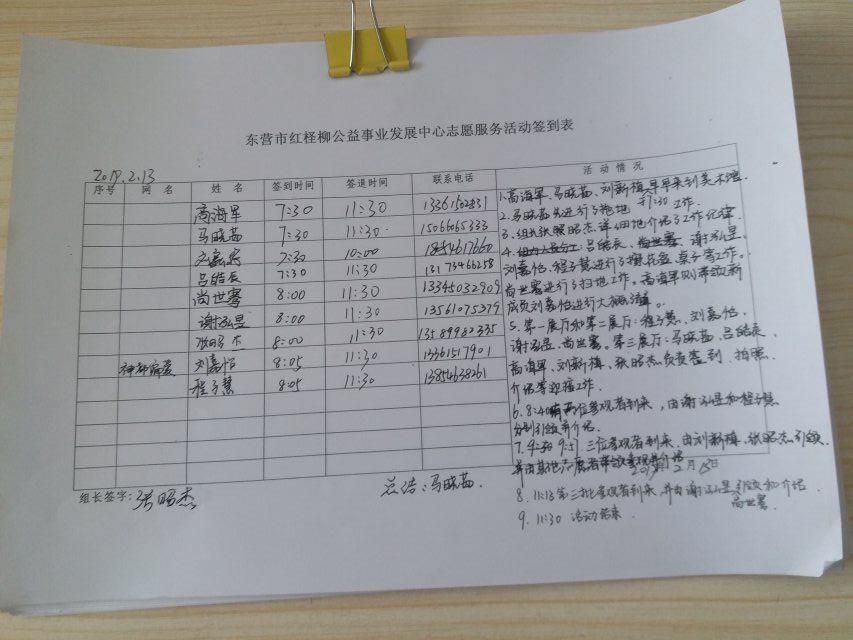 东营市红柽柳公益事业发展中心志愿服务活动签到表
2019.2.13
序号 网 名 姓 名 签到时间 签退时间 联系电话 活 动 情 况
高海军 7:30 11:30 13361502831
马晓茹 7:30 11:30 15066065333
7:30 10:00 18454617660
吕皓辰 7:30 11:30 13173466258
尚世骞 8:00 11:30 13345032909
谢泓昱 8:00 11:30 13561075379
8:00 11:30 13589982335
刘嘉怡 8:05 11:30 13361517901
程子慧 8:05 11:30 13854638261
1.高海军、马晓茹、刘新植早早来到美术馆.
7:30 工作.
2.马晓茹先进行了拖地
3.组长张昭杰详细地介绍了工作纪律
4. 吕皓辰、尚世骞、谢泓昱、
刘嘉怡、程子慧进行了摆花盆、桌子等工作。
尚世骞进行了扫地工作。高海军则带领新
成员刘嘉怡进行大
5. 第一展厅和第二展厅:程子慧、刘嘉怡、
谢泓昱、尚世骞。第三展厅:马晓茹、吕皓辰
高海军、刘新植、张昭杰负责签到、拍照、
介绍等迎接工作.
6. 8:40 位参观者到来,由谢泓昱和程子慧
分别引领并介绍.
7. 9:57 三位参观者到来,由刘新植、张昭杰引领,
并由其他
2019年2月13日
8. 11:13 第三批参观者到来,并由谢泓昱引领和介绍.
尚世骞
9. 11:30 活动结束.
组长签字:张昭杰
总结:马晓茹.